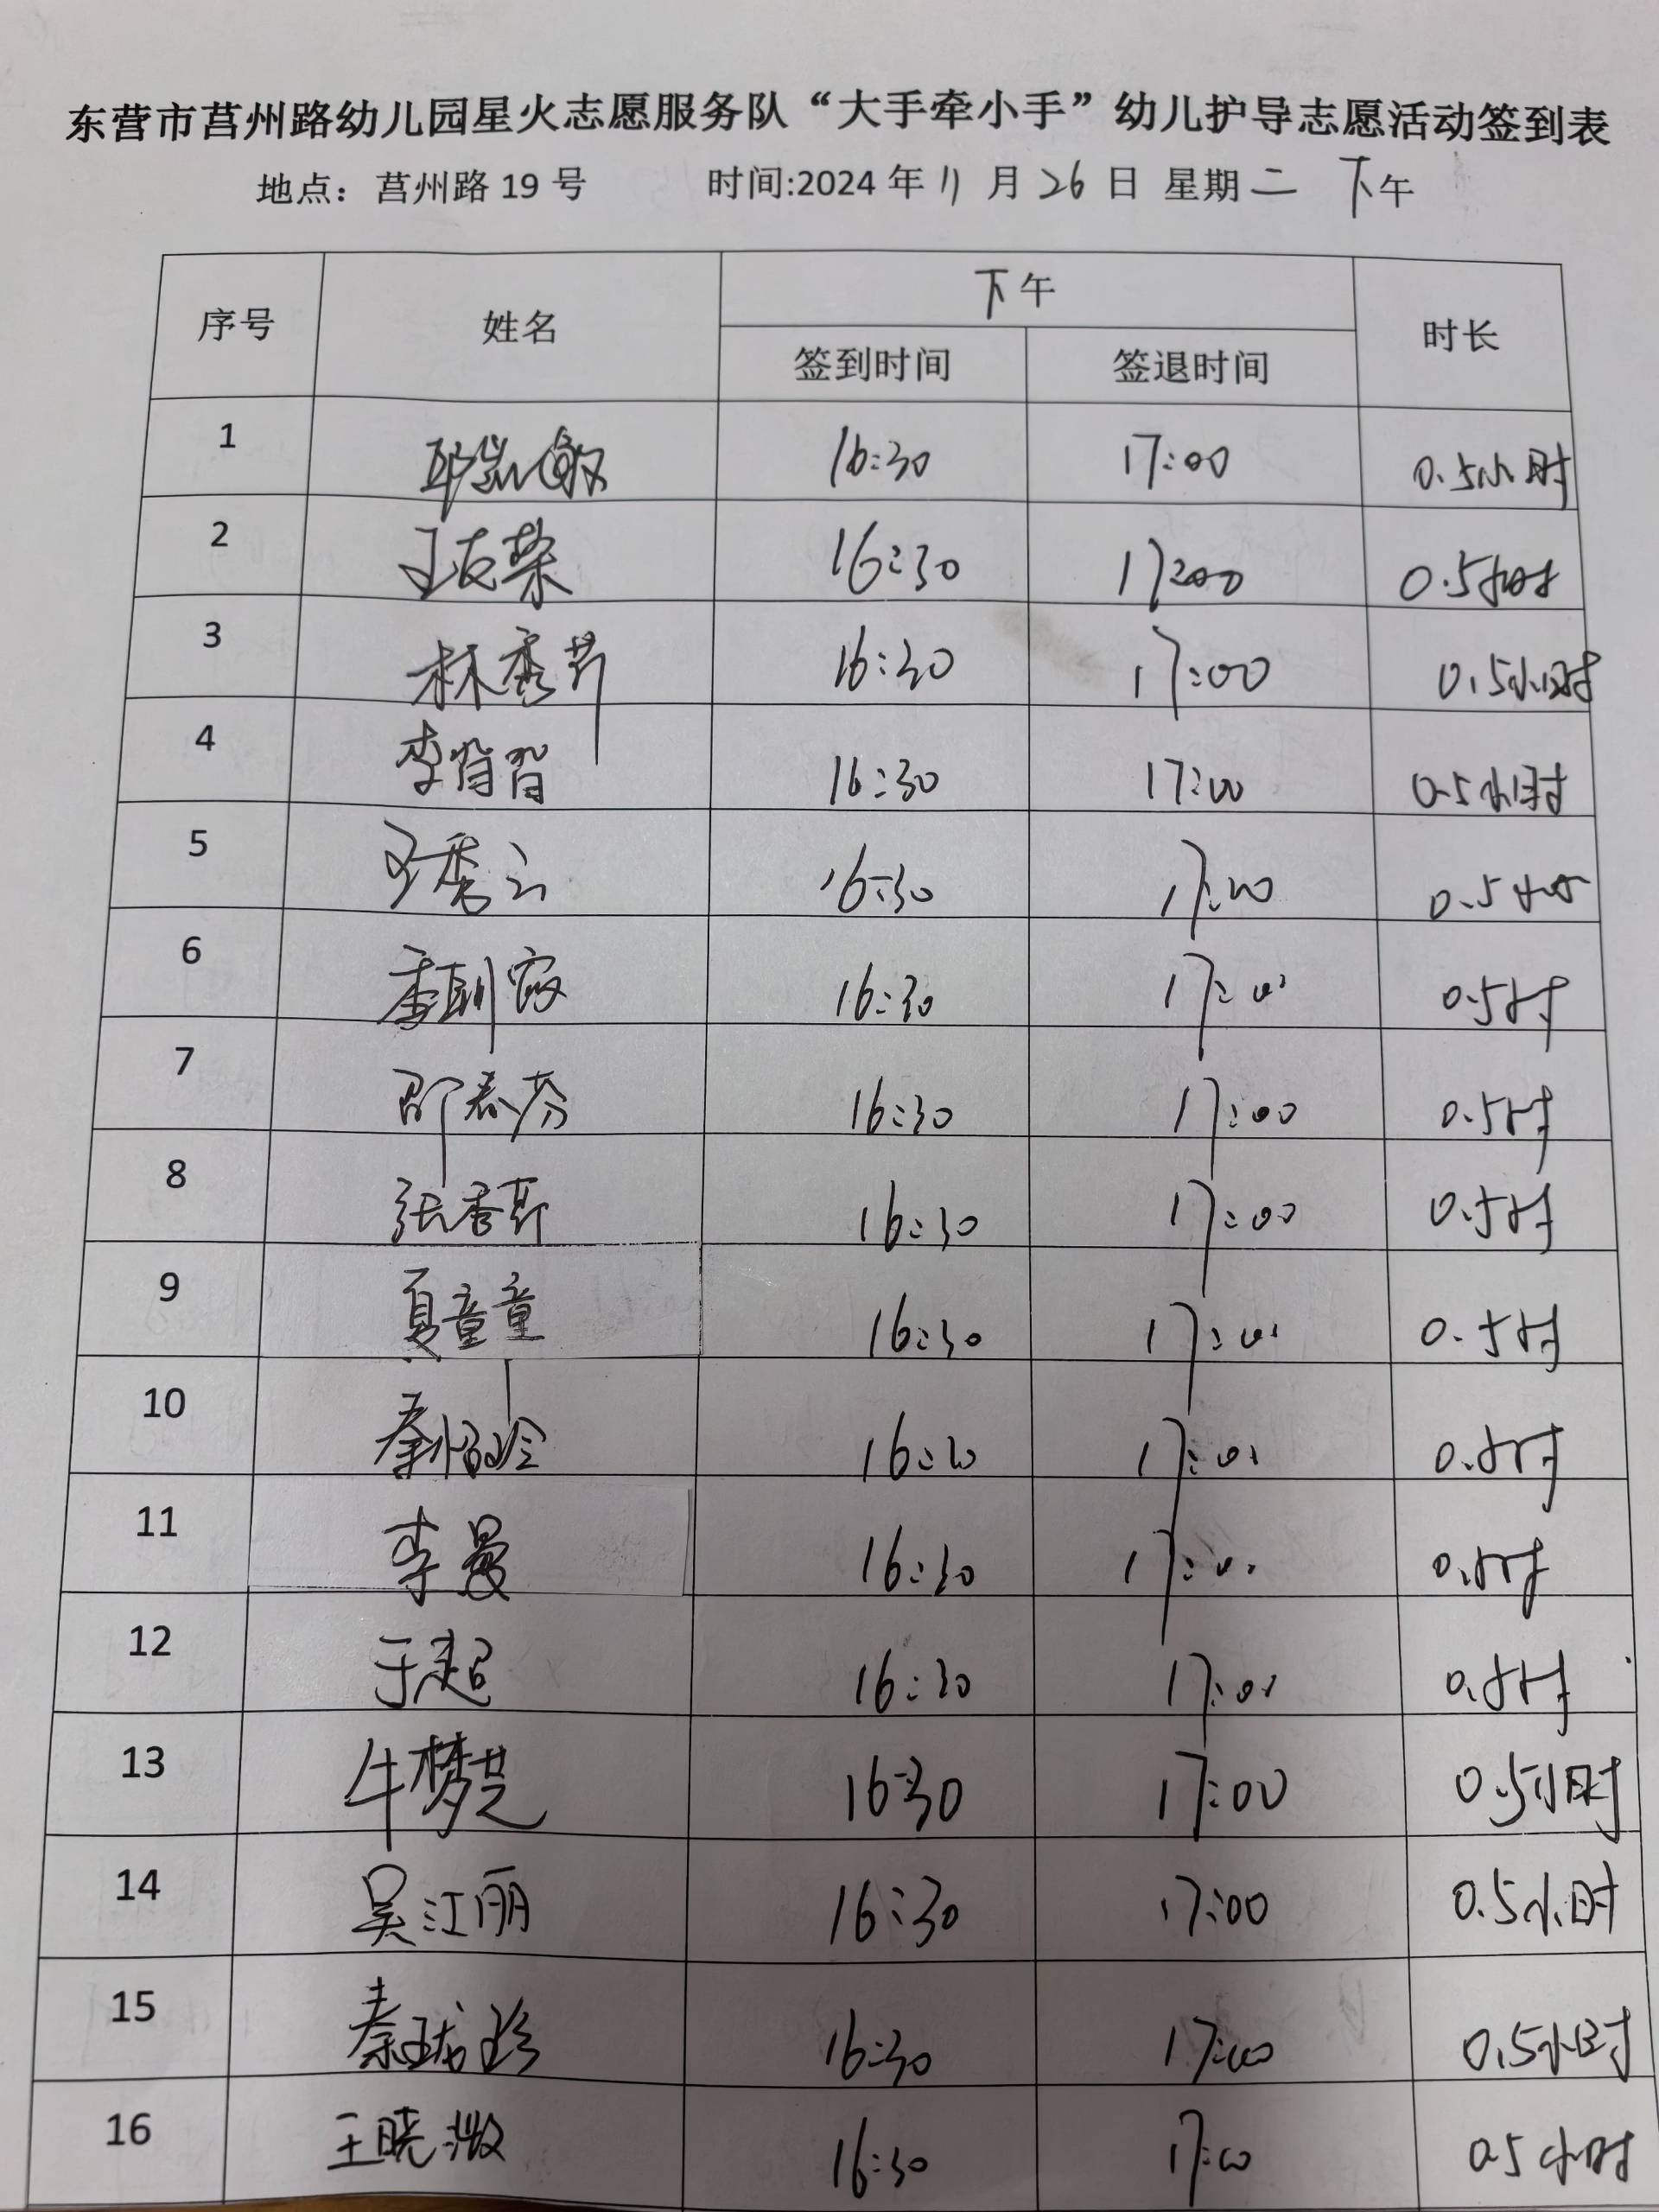 东营市莒州路幼儿园星火志愿服务队“大手牵小手”幼儿护导志愿活动签到表
地点：莒州路 19 号 时间:2024 年 11 月 26 日 星期 二 下午
序号 姓名 下午 时长
签到时间 签退时间
1 16:30 17:00 0.5小时
2 王友荣 16:30 17:00 0.5小时
3 林秀芹 16:30 17:00 0.5小时
4 李 16:30 17:00 0.5小时
5 王秀云 16:30 17:00 0.5小时
6 16:30 17:00 0.5时
7 邵春芬 16:30 17:00 0.5时
8 张秀芹 16:30 17:00 0.5时
9 夏童童 16:30 17:00 0.5时
10 秦 16:30 17:00 0.5时
11 李曼 16:30 17:00 0.5时
12 于超 16:30 17:00 0.5时
13 牛梦芝 16:30 17:00 0.5小时
14 吴江丽 16:30 17:00 0.5小时
15 秦珑珍 16:30 17:00 0.5小时
16 王晓溦 16:30 17:00 0.5小时